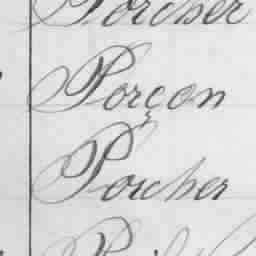 Porcher
Porçon
Porcher